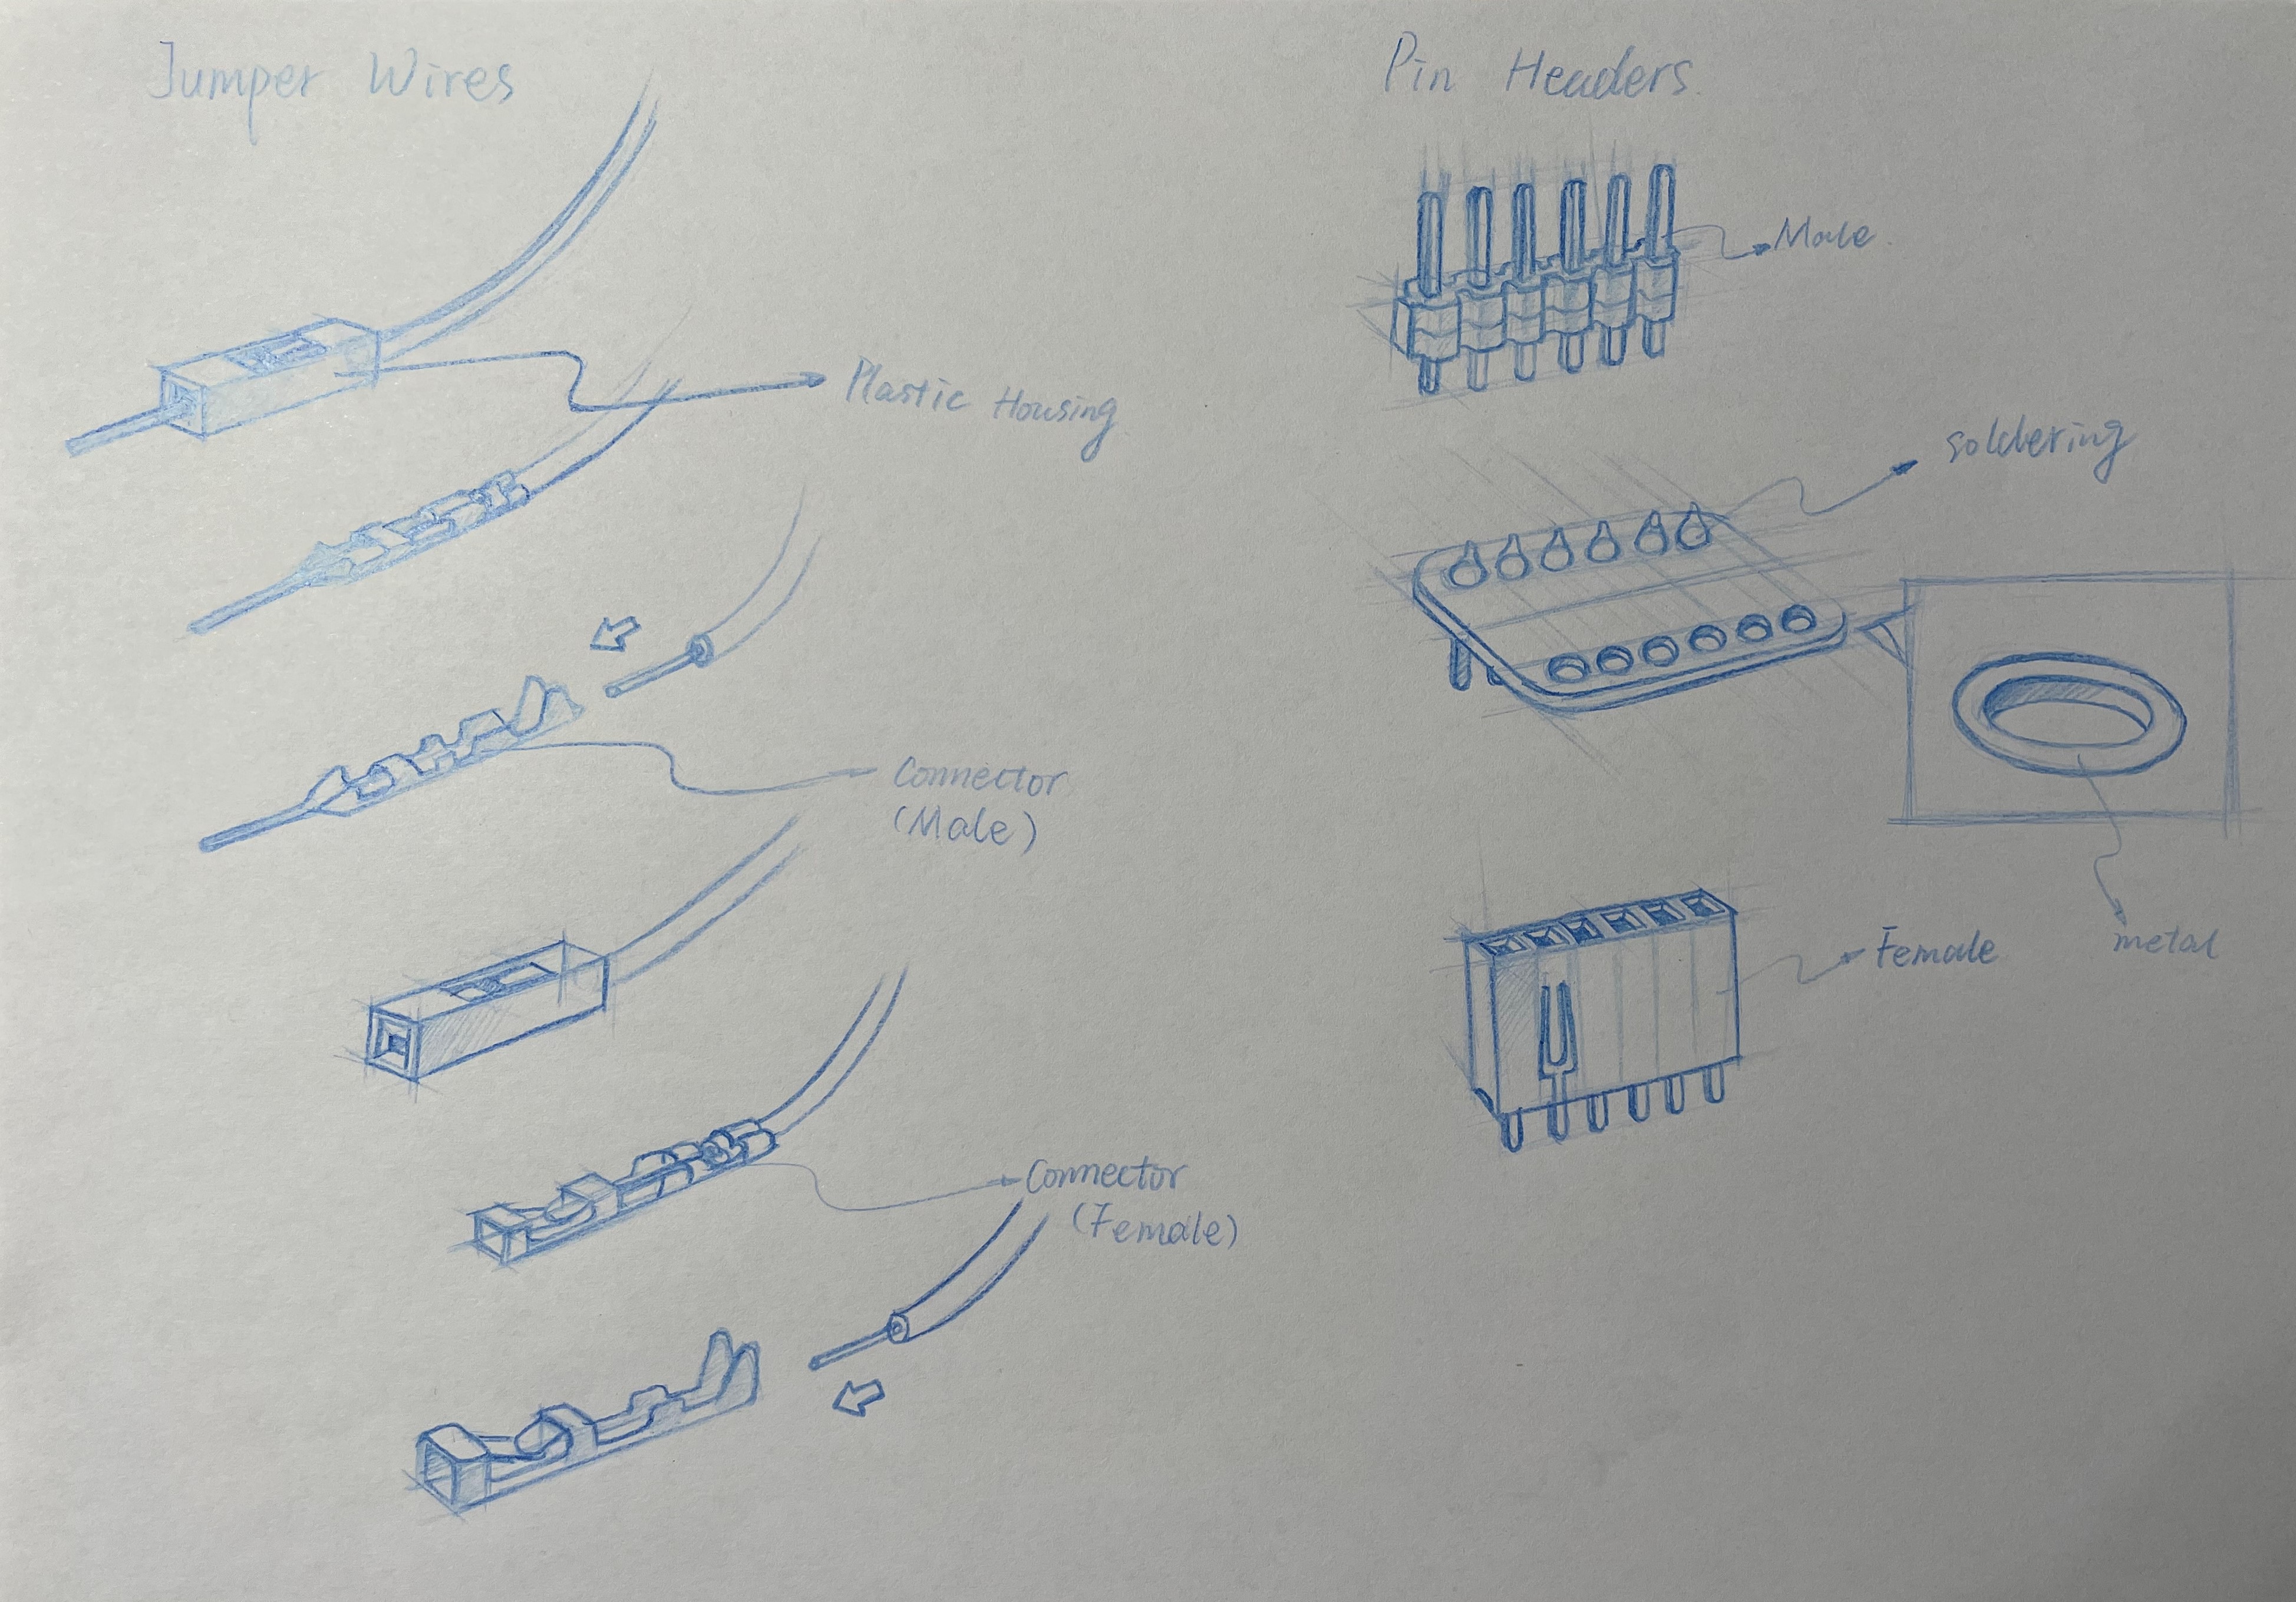 Jumper Wires
Plastic Housing
Connector
(Male)
Connector
(Female)
Pin Headers
Male
soldering
metal
Female